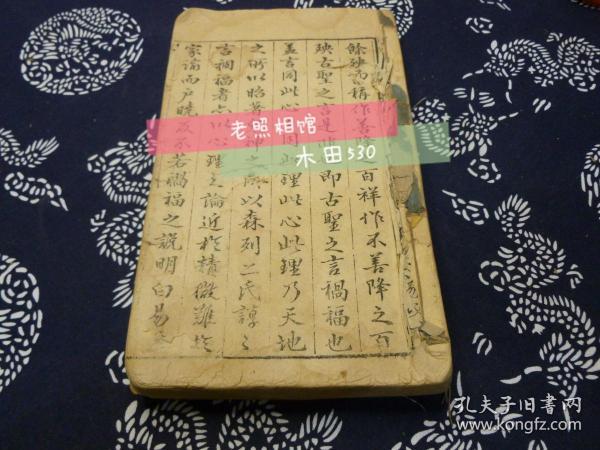 餘殃書稱作善降之百祥作不善降之百
殃古聖之言是 即古聖之言禍福也
盖古同此心同此理此心此理乃天地
之所以昭著 神之所以森列二氏諄々
言禍福者亦以心理之論近於積微難於
家諭而戶曉反不若禍福之說明白易
老照相馆
木田530
孔夫子旧书网
www.kongfz.com